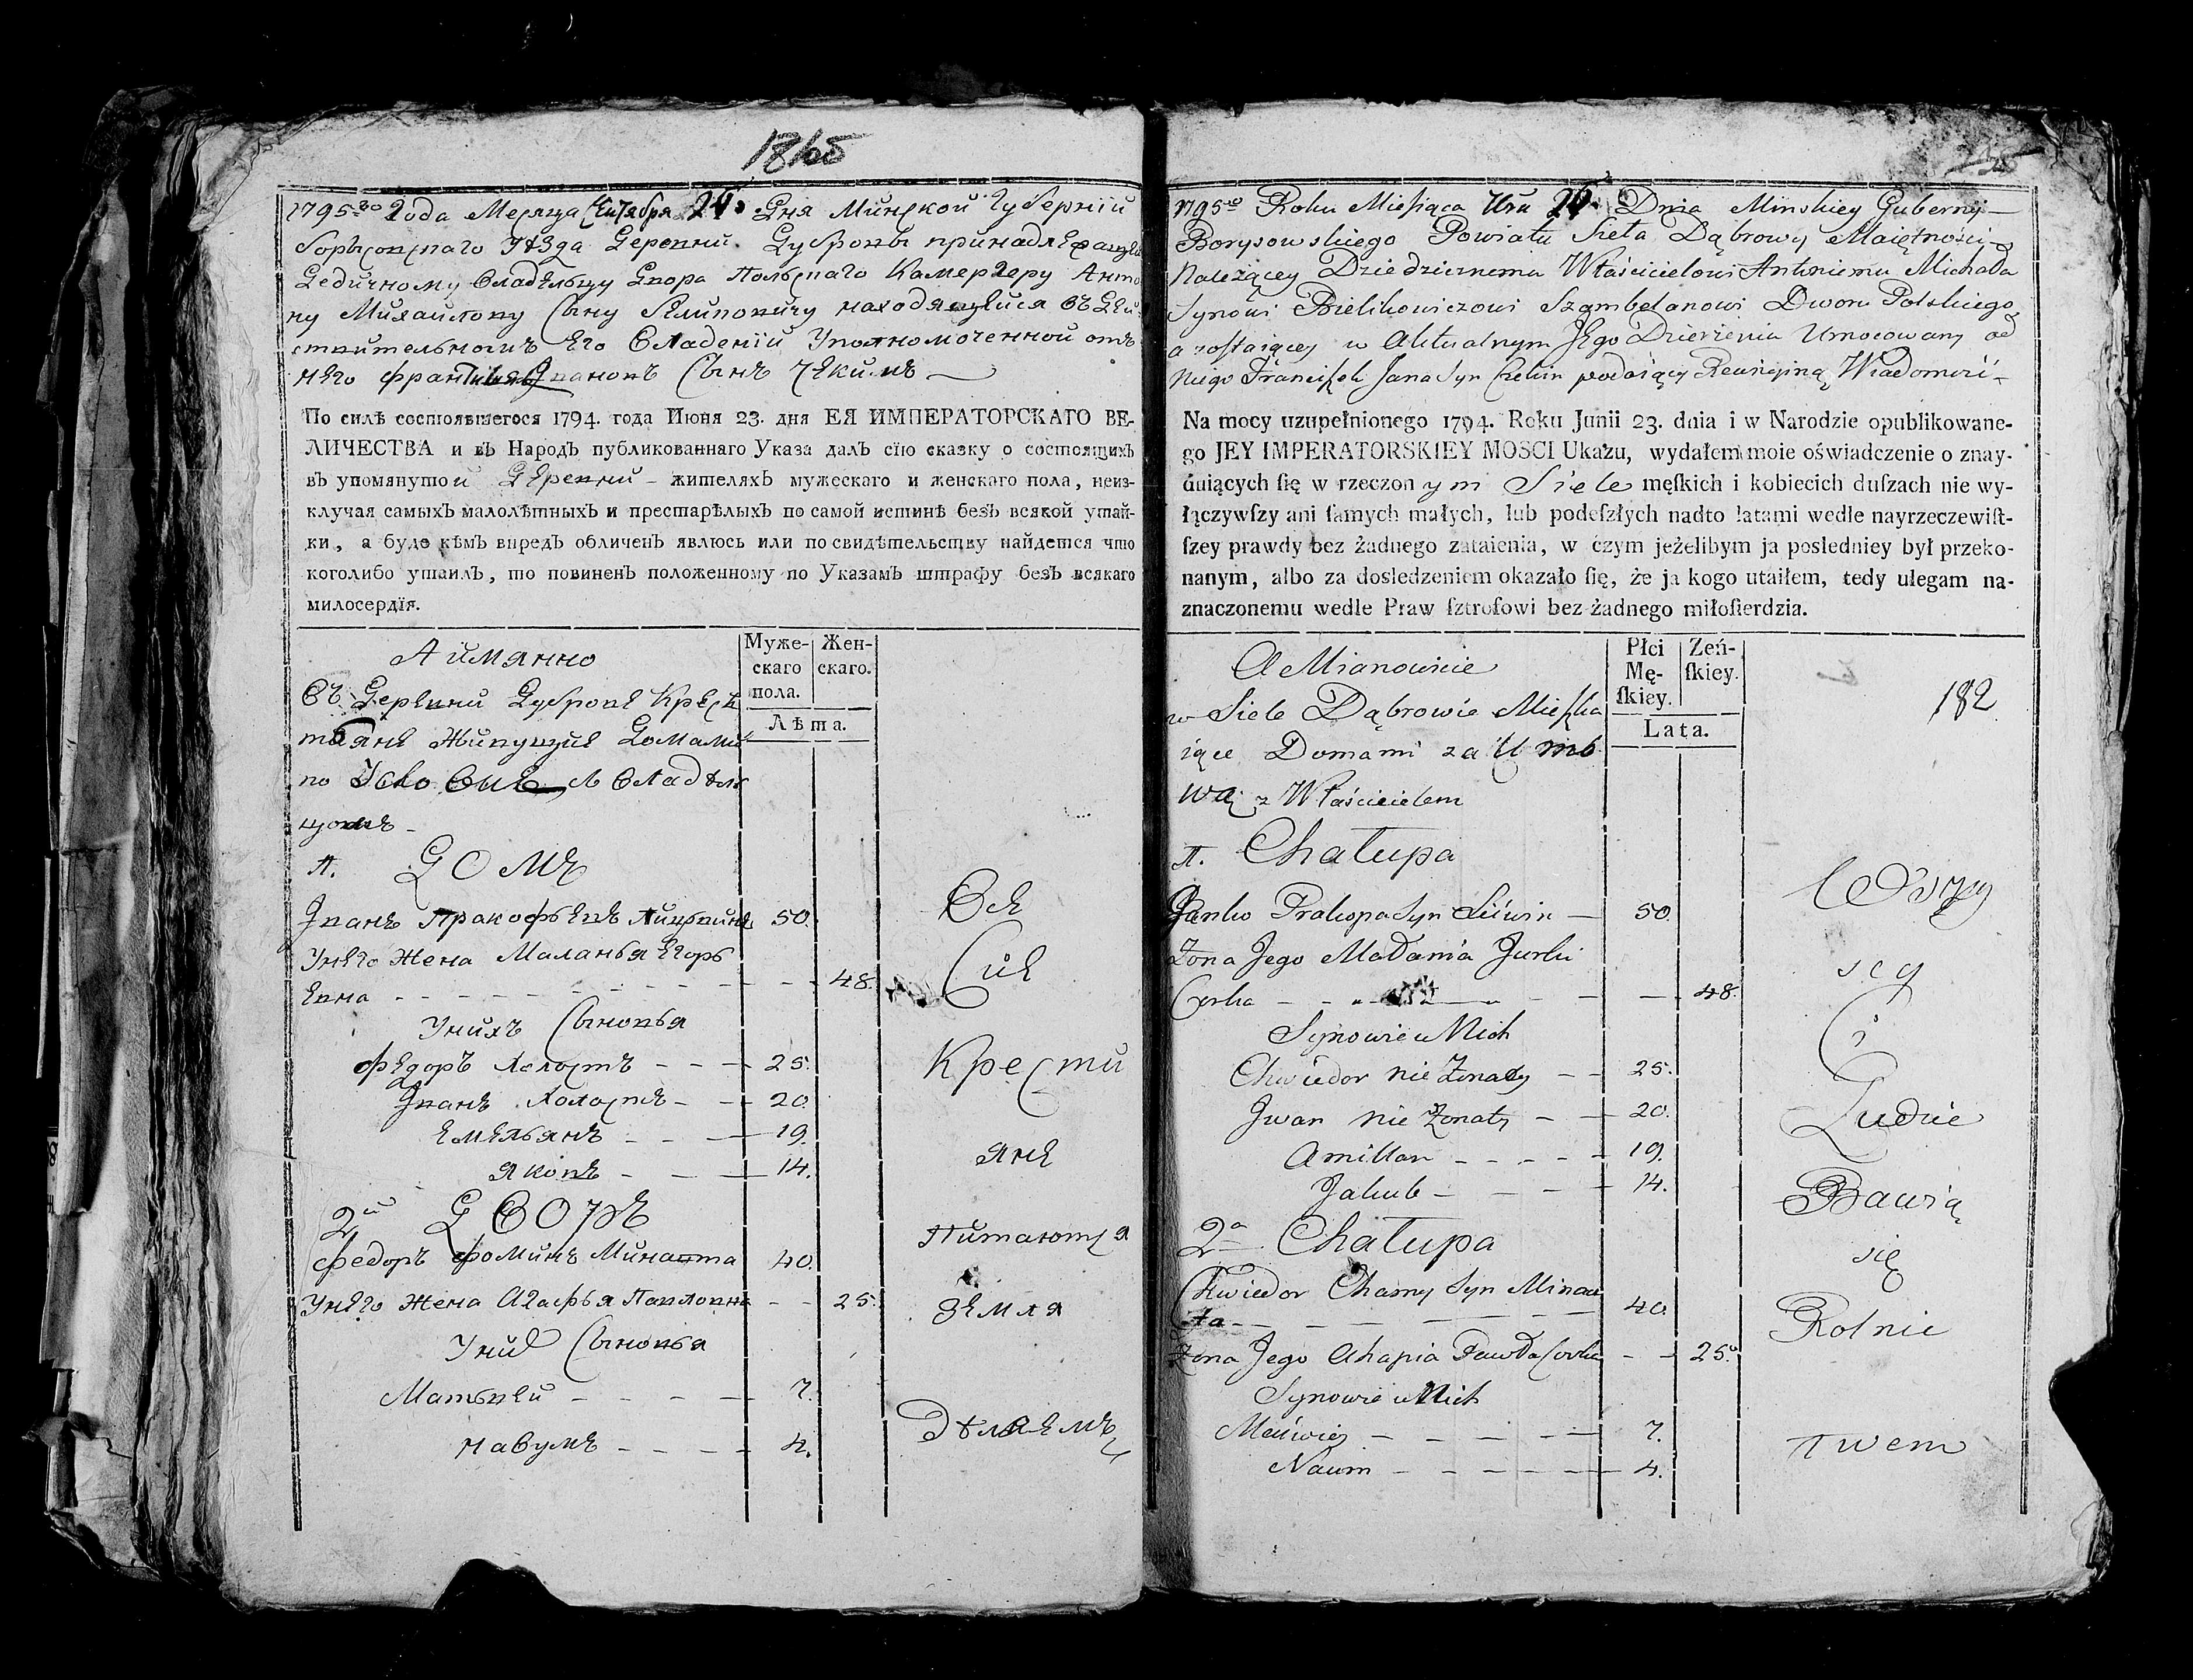 1795го Года Месяца Сентября Дня Минской Губернии
Борысовскаго Уезда Деревни Дубровы принадлежащей
Дедичному Владельцу Двора Польскаго Камергеру Анто
ну Михайлову Сыну находящейся въ Дей
ствительномъ Его Владении Уполномоченной отъ
Него Франц Ивановъ Сынъ
По силѣ состоявшегося 1794. года Июня 23. дня ЕЯ ИМПЕРАТОРСКАГО ВЕ-
ЛИЧЕСТВА и въ Народъ публикованнаго Указа далъ сїю сказку о состоящихъ
въ упомянутой Деревни жителяхъ мужескаго и женскаго пола, неиз-
ключая самыхъ малолѣтныхъ и престарѣлыхъ по самой истинѣ безъ всякой утай-
ки, а буде кѣмъ впредъ обличенъ явлюсь или по свидѣтельству найдется что
коголибо утаилъ, то повиненъ положенному по Указамъ штрафу безъ всякаго
милосердїя.
Муже-
скаго
пола.
Жен-
скаго.
Лѣта.
А имянно
Въ Деревни Дуброве Кресть
яне Живущие Домами
по с Владель
цомъ
Домъ
Иванъ Пракофьевъ 50.
У него Жена Маланья Егорь
евна 48.
У нихъ Сыновья
Федоръ Холостъ 25.
Иванъ Холостъ 20.
Емельянъ 19.
Яковъ 14.
2й Дворъ
Федоръ Фоминъ Мината 40.
У него Жена Агафья Павловна 25.
У них Сыновья
Матвей 7.
Навумъ 4.
Все
Сие
Крести
яне
Питаются
Земля
Деліемъ
1795 Roku Miesiąca Dnia Minskiey Gubernij
Borysowskiego Powiatu Sieła Dąbrowy Maiętności
Należącey Dziedzicznemu Właścicielowi Antoniemu Michała
Synowi Szambelanowi Dworu Polskiego
a zostaiącey w Aktualnym Jego Dzierżeniu Umocowany od
Niego Franciszek Jana Syn podaiący Rewizyiną Wiadomość
Na mocy uzupełnionego 1794. Roku Junii 23. dnia i w Narodzie opublikowane-
go JEY IMPERATORSKIEY MOSCI Ukazu, wydałem moie oświadczenie o znay-
duiących ſię w rzeczonym Siele męſkich i kobiecich duſzach nie wy-
łączywſzy ani ſamych małych, lub podeſzłych nadto latami wedle nayrzeczewiſt-
ſzey prawdy bez żadnego zataienia, w czym jeżelibym ja posledniey był przeko-
nanym, albo za dosledzeniem okazało ſię, że ja kogo utaiłem, tedy ulegam na-
znaczonemu wedle Praw ſztrofowi bez żadnego miłoſierdzia.
Płci
Mę-
ſkiey.
Zeń-
ſkiey.
Lata.
182
A Mianowicie
w Siele Dąbrowie Mieszka
iące Domami za Umo
wą z Właścicielem
Chałupa
Janko Prakopa Syn 50.
Żona Jego Małania Jurki
Corka 48.
Synowie u Nich
Chwiedor nie Żonaty 25.
Jwan nie Żonaty 20.
Amillan 19.
Jakub 14.
2a Chałupa
Chwiedor Chamy Syn Minau
ta 40.
Żona Jego Ahapia Pawła Corka 25.
Synowie u Nich
Maćwiey 7.
Naum 4.
Wszy
scy
Ci
Ludzie
Bawią
się
Rolnic
twem